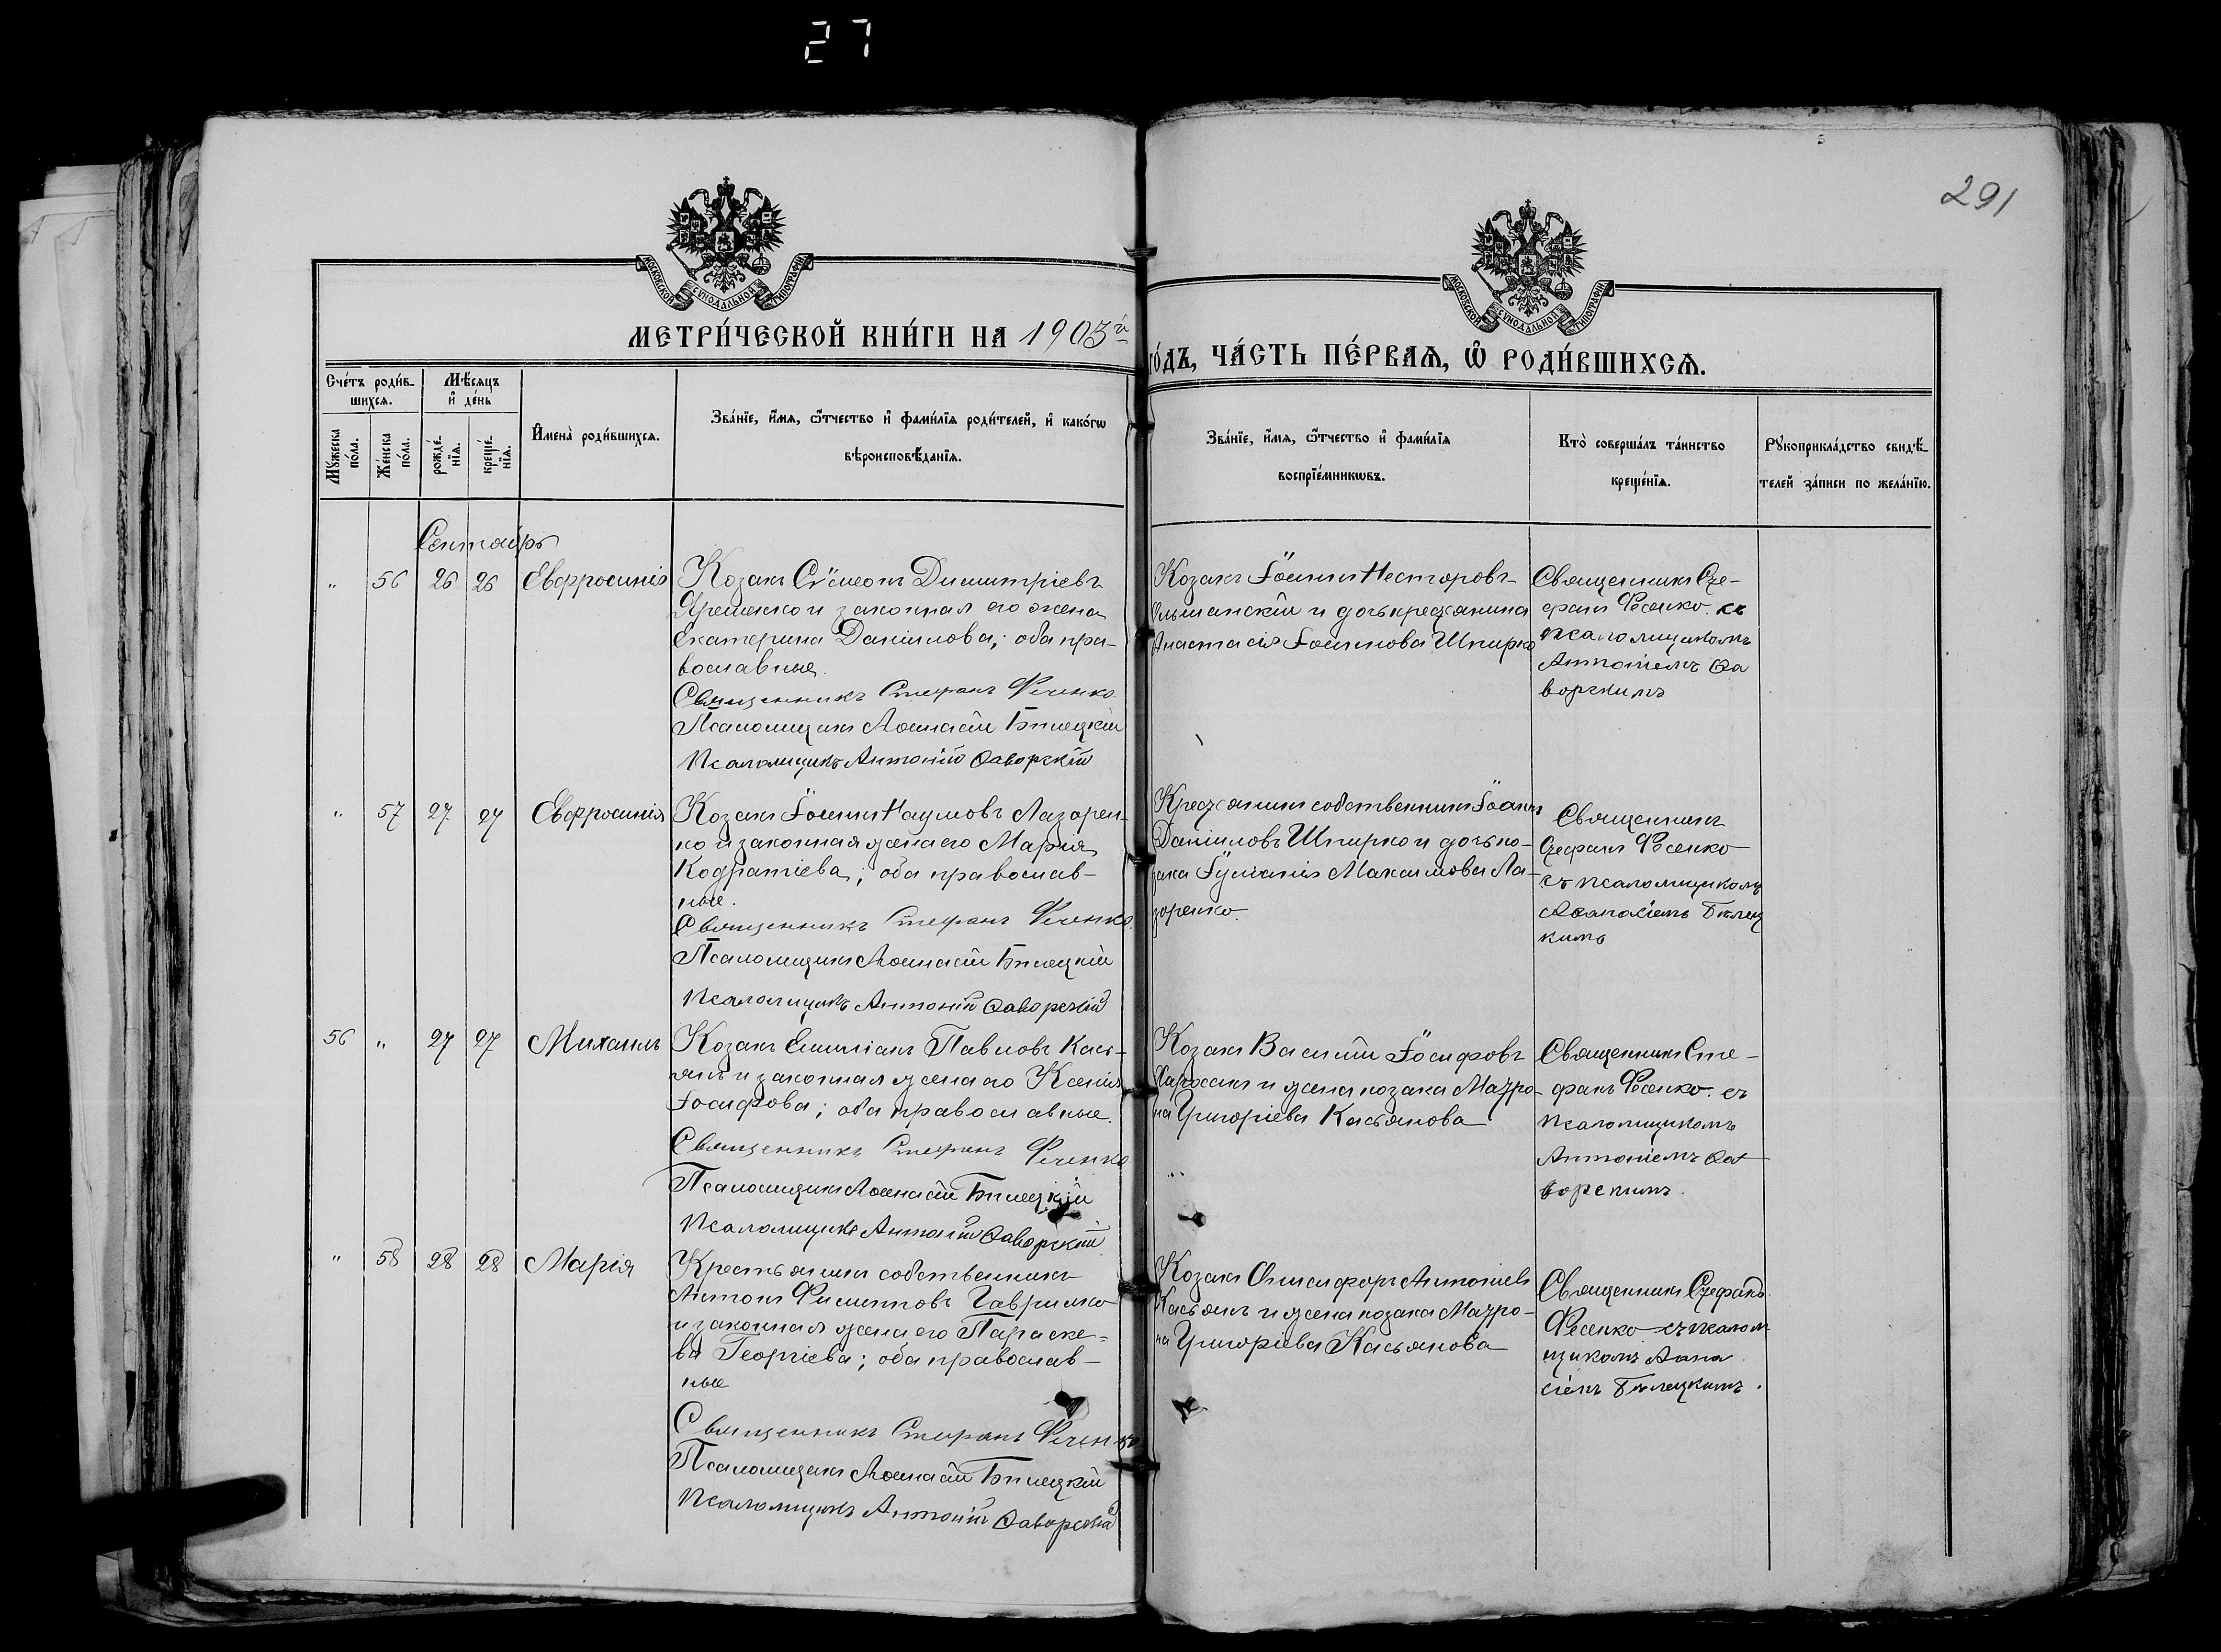 27
291
МОСКОВСКОЙ СѴНОДАЛЬНОЙ ТИПОГРАФІИ
МОСКОВСКОЙ СѴНОДАЛЬНОЙ ТИПОГРАФІИ
МЕТРИ́ЧЕСКОЙ КНИ́ГИ НА 1903й
го́дъ, ЧА́СТЬ ПЕ́РВАѦ, Ѽ РОДИ́ВШИХСѦ.
Сче́тъ роди́в-
шихсѧ.
Мꙋ́жеска
по́ла.
Же́нска
по́ла.
Мѣ́сѧцъ
и҆ де́нь
рожде́-
нїѧ.
креще́-
нїѧ.
И҆мена̀ роди́вшихсѧ.
Зва́нїе, и҆́мѧ, ѻ҆́тчество и҆ фами́лїѧ роди́телей, и҆ како́гѡ
вѣроисповѣ́данїѧ.
Зва́нїе, и҆́мѧ, ѻ҆́тчество и҆ фами́лїѧ
воспрїе́мникѡвъ.
Кто̀ соверша́лъ та́инство
креще́нїѧ.
Рꙋкоприкла́дство свидѣ́-
телей за́писи по жела́нїю.
Сентябрь
" 56 26 26 Евфросинія
Козакъ Сѵмеонъ Димитріевъ
Яременко и законная его жена
Екатерина Даніилова; оба пра-
вославные.
Священникъ Стефанъ Фесенко
Псаломщикъ Аѳанасій Билецкій
Псаломщикъ Антоній Яворскій
Козакъ Іоаннъ Несторовъ
Ольшанскій и дочь крестьянина
Анастасія Іоаннова Шпирко
Священникъ Сте-
фанъ Фесенко съ
псаломщикомъ
Антоніемъ Яа
ворскимъ
" 57 27 27 Евфросинія
Козакъ Іоаннъ Наумовъ Лазорен-
ко и законная жена его Марія
Кодратіева; оба православ-
ные.
Священникъ Стефанъ Фесенко.
Псаломщикъ Аѳанасій Билецкій
Псаломщикъ Антоній Яворскій
Крестьянинъ собственникъ Іоаннъ
Даніиловъ Шпирко и дочь ко-
зака Іуліанія Максимова Ла-
зоренко.
Священникъ
Стефанъ Фесенко
съ псаломщикомъ
Аѳанасіемъ Билец
кимъ
56 " 27 27 Михаилъ
Козакъ Емиліанъ Павловъ Кась-
янъ и законная жена его Ксенія
Іосифова; оба православные.
Священникъ Стефанъ Фесенко
Псаломщикъ Аѳанасій Билецкій
Псаломщикъ Антоній Яворскій
Козакъ Василій Іосифовъ
и жена козака Матро-
на Григоріева Касьянова
Священникъ Сте-
фанъ Фесенко съ
псаломщикомъ
Антоніемъ Яа
ворскимъ.
" 58 28 28 Марія
Крестьянинъ собственникъ
Антонъ Филипповъ Гаврилко
и законная жена его Параске-
ва Георгіева; оба православ-
ные
Священникъ Стефанъ Фесенко
Псаломщикъ Аѳанасій Билецкій
Псаломщикъ Антоній Яворскій
Козакъ Онисифоръ Антоніевъ
Касьянъ и жена козака Матро-
на Григоріева Касьянова
Священникъ Стефанъ
Фесенко съ псалом
щикомъ Аѳана
сіемъ Билецкимъ.